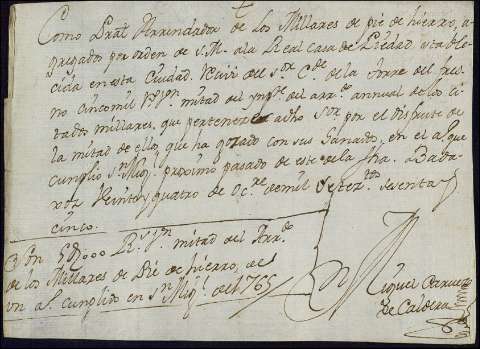 Como Pral Arrendador de los Millares de pie de hierro, a
gregados por orden de S.M. a la Real casa de Piedad establec
cida en esta Ciudad. Recivi del Sor Cde de la Torre del fres
no cinco mil Rs vn mitad del ymre del arro annual de los ci
tados millares, que pertenece a dho Sor por el disfrute de
la mitad de ellos que ha gozado con sus Ganados, en el a que
cumplio Sn Migl proximo pasado de este de la fha. Bada
xoz Veinte y quatro de Ocre de mil Setezos sesenta
cinco.
Son 5U000 Rs vn mitad del Arro
de los Millares de Pie de hierro, de
un a cumplido en Sn Migl de 1765
Miguel
de Caldera